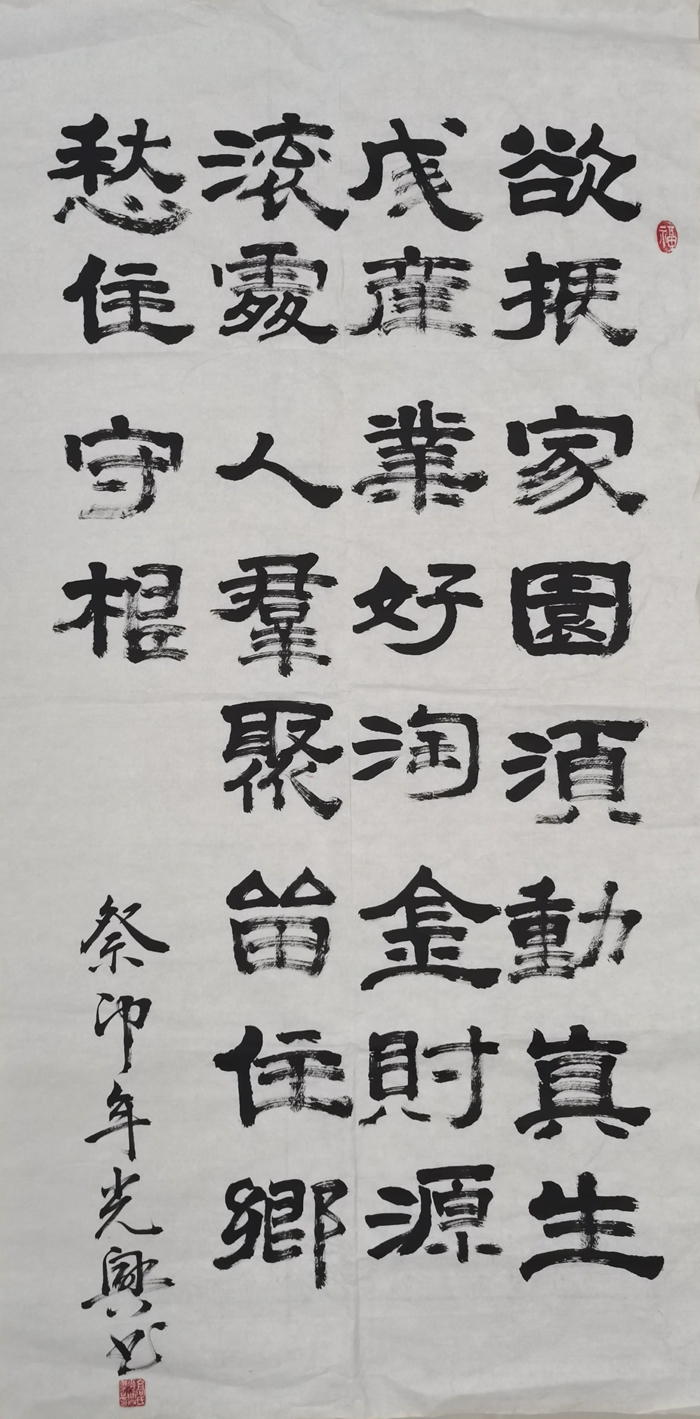 福
欲振家園湏動真生
成產業好淘金財源
滾處人羣聚留住鄉
愁住守根
癸卯年光興书